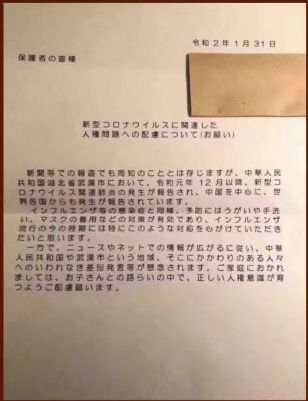 令和２年１月３１日
保護者の皆様
新型コロナウイルスに関連した
人権問題への配慮について(お願い)
新聞等での報道でも周知のこととは存じますが、中華人民
共和国湖北省武漢市において、令和元年１２月以降、新型コ
ロナウイルス関連肺炎の発生が報告され、中国を中心に、世
界各国からも発生が報告されています。
インフルエンザ等の感染症と同様、予防にはうがいや手洗
い、マスクの着用などの対策が有効であり、インフルエンザ
流行の今の時期には特にこのような対応を心がけていただき
たいと思います。
一方で、ニュースやネットでの情報が広がるに従い、中華
人民共和国や武漢市という地域、そこにかかわりのある人々
へのいわれなき差別発言等が懸念されます。ご家庭におかれ
ましては、お子さんとの語らいの中で、正しい人権意識が育
つようご配慮願います。